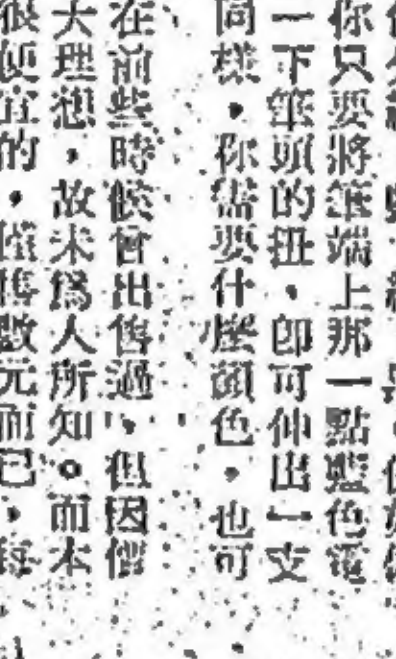 你只要將筆端上那一點藍色電
一下筆頭的扭,卽可伸出一支
同樣,你需要什麽顏色,也可
在前些時候曾出售過,但因價
大理想,故未爲人所知。而本
很便宜的,僅售數元而已,每